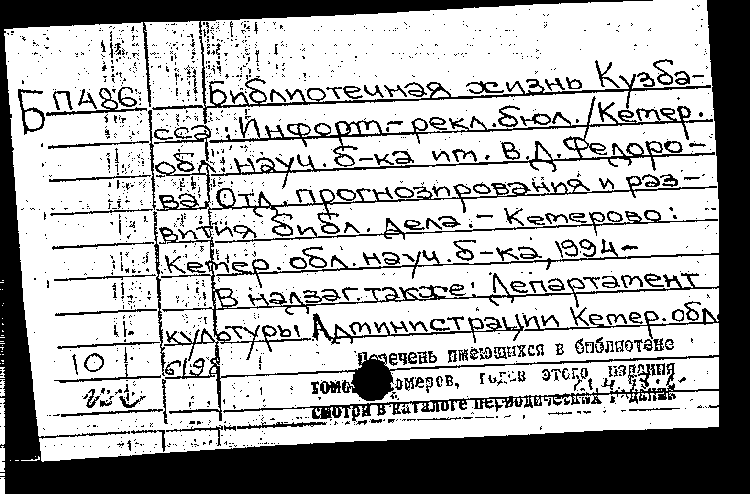 Б П486 Библиотечная жизнь Кузба-
сса: Информ.-рекл.бюл./Кемер.
обл.науч.б-ка им. В.Д.Федоро-
ва, Отд. прогнозирования и раз-
вития библ. дела.- Кемерово:
Кемер.обл.науч.б-ка, 1994-
В надзаг.также: Департамент
культуры Администрации Кемер.обл.
10 6198
Перечень имеющихся в библиотеке
томов, номеров, годов этого издания
смотри в каталоге периодических изданий